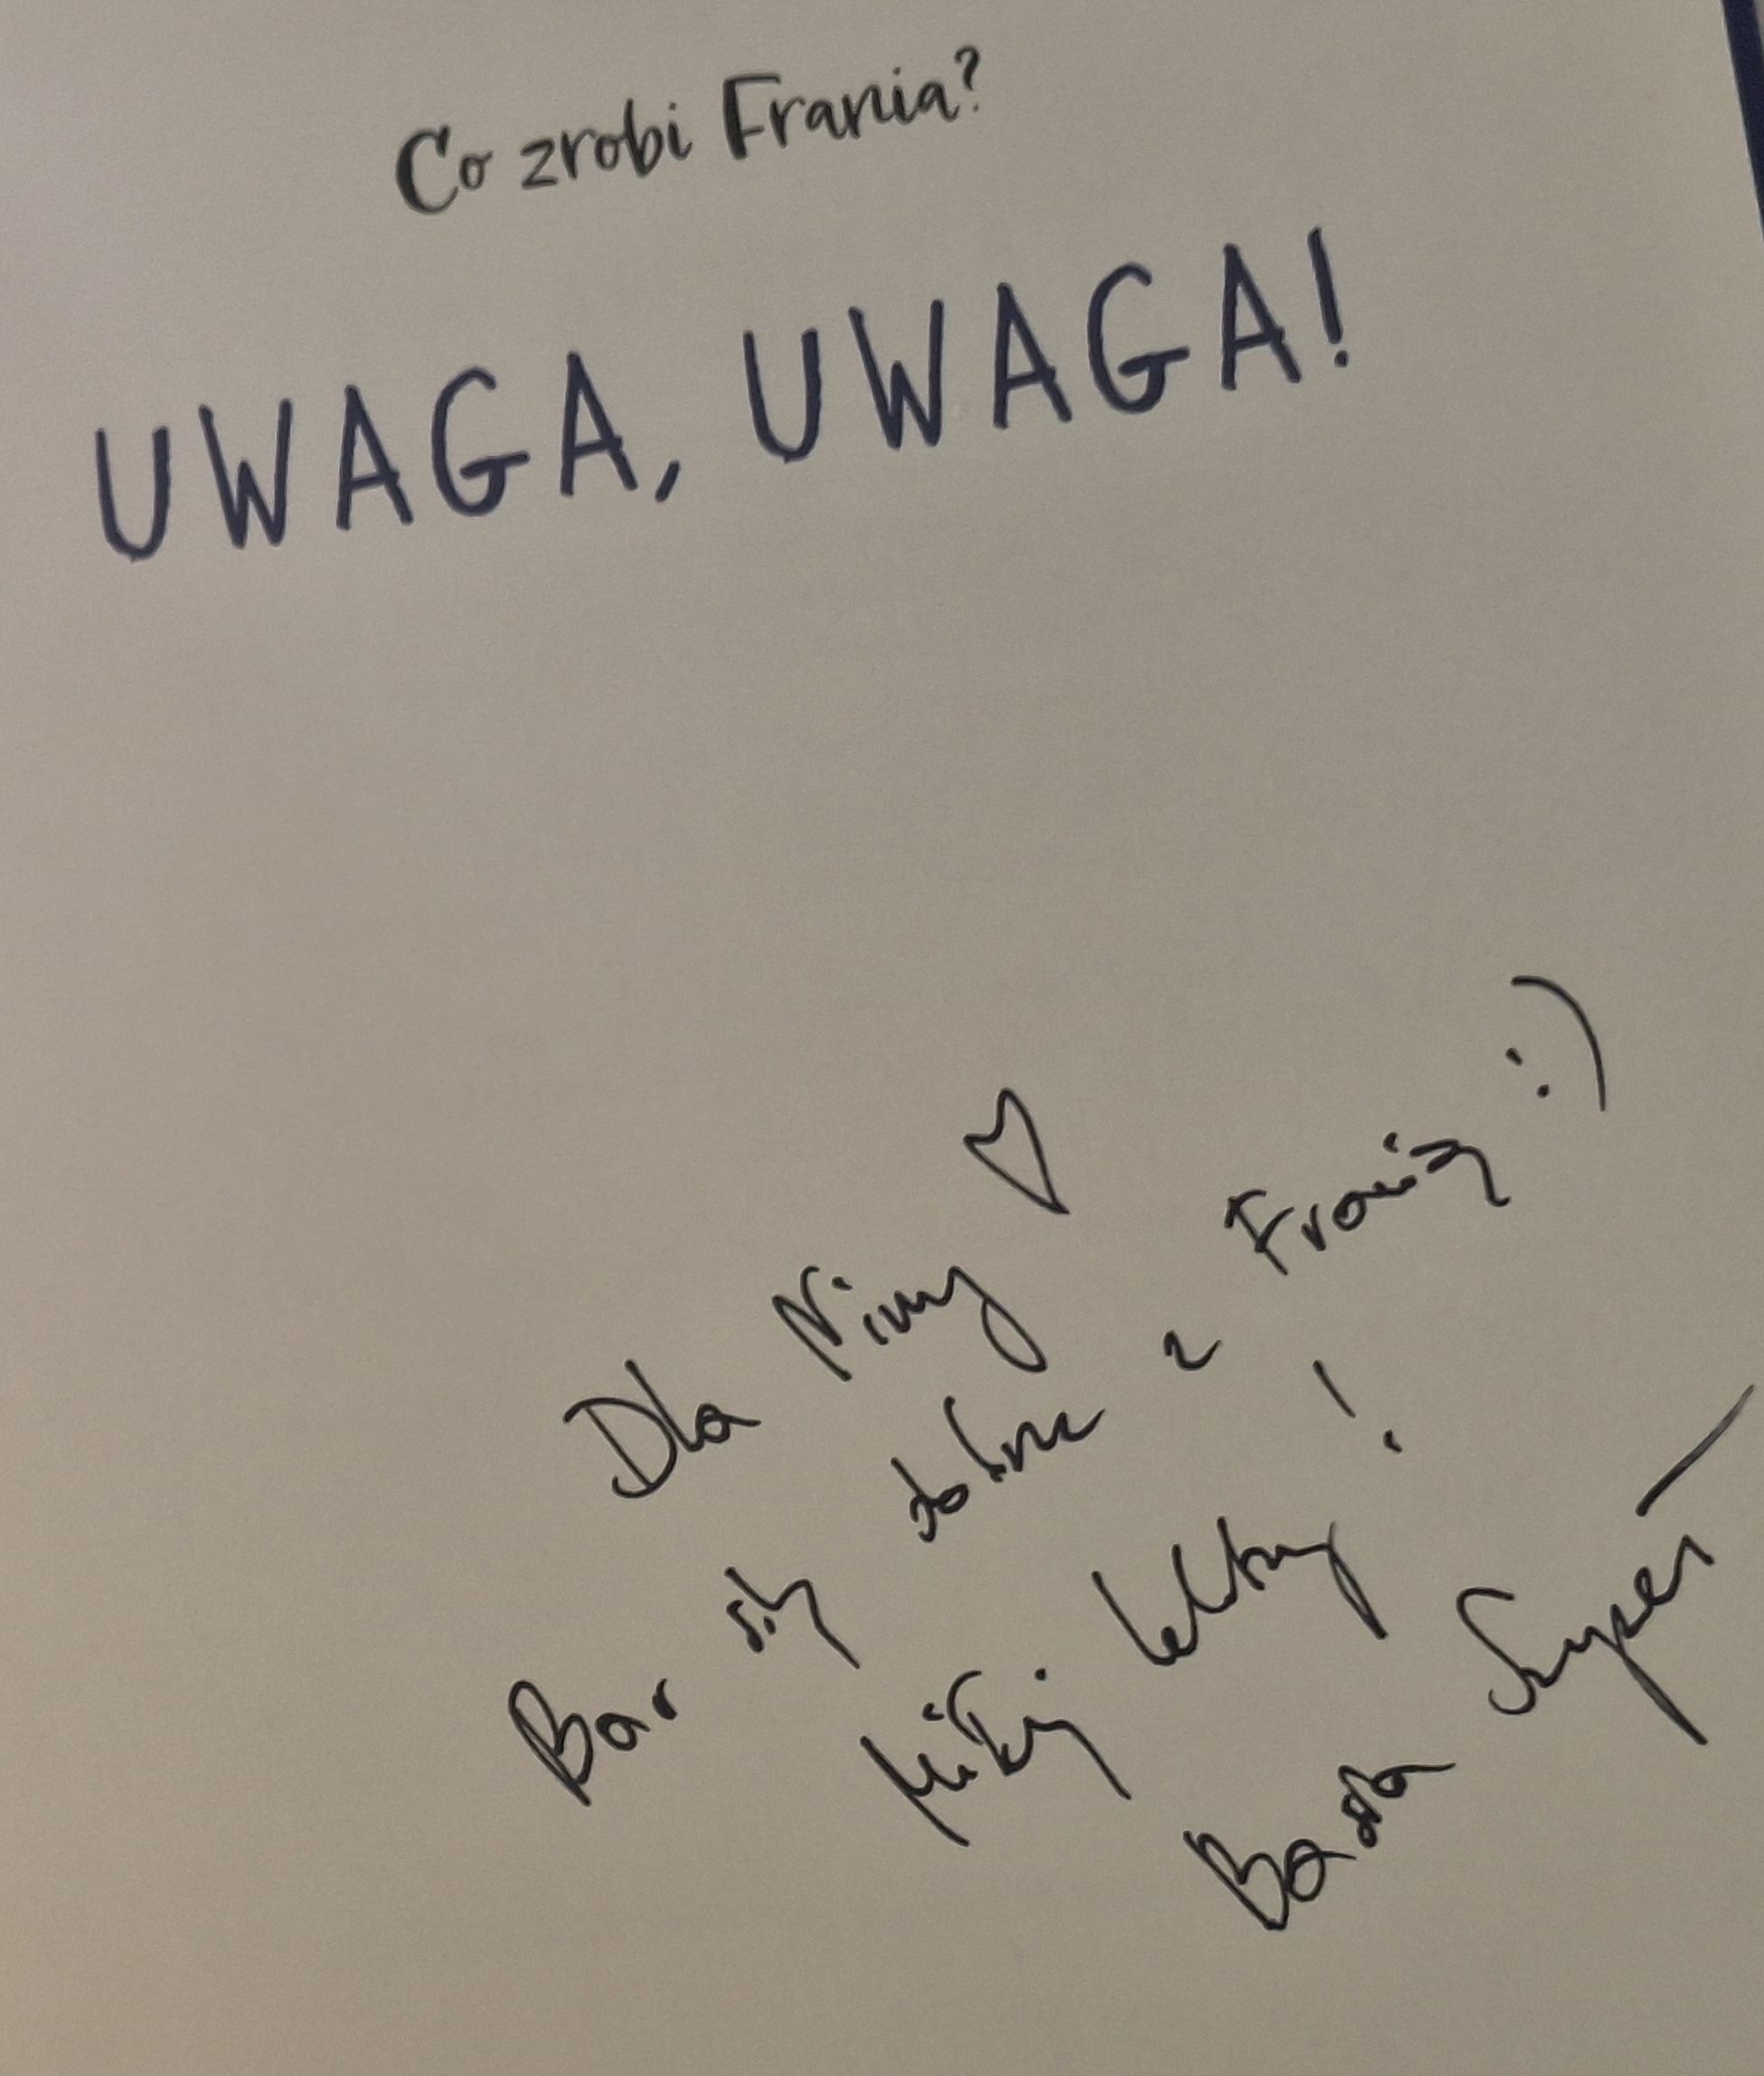 Co zrobi Frania?
UWAGA, UWAGA!
Dla Niny ♡
Baw się dobrze z Franią :)
Miłej lektury!
Basia Super